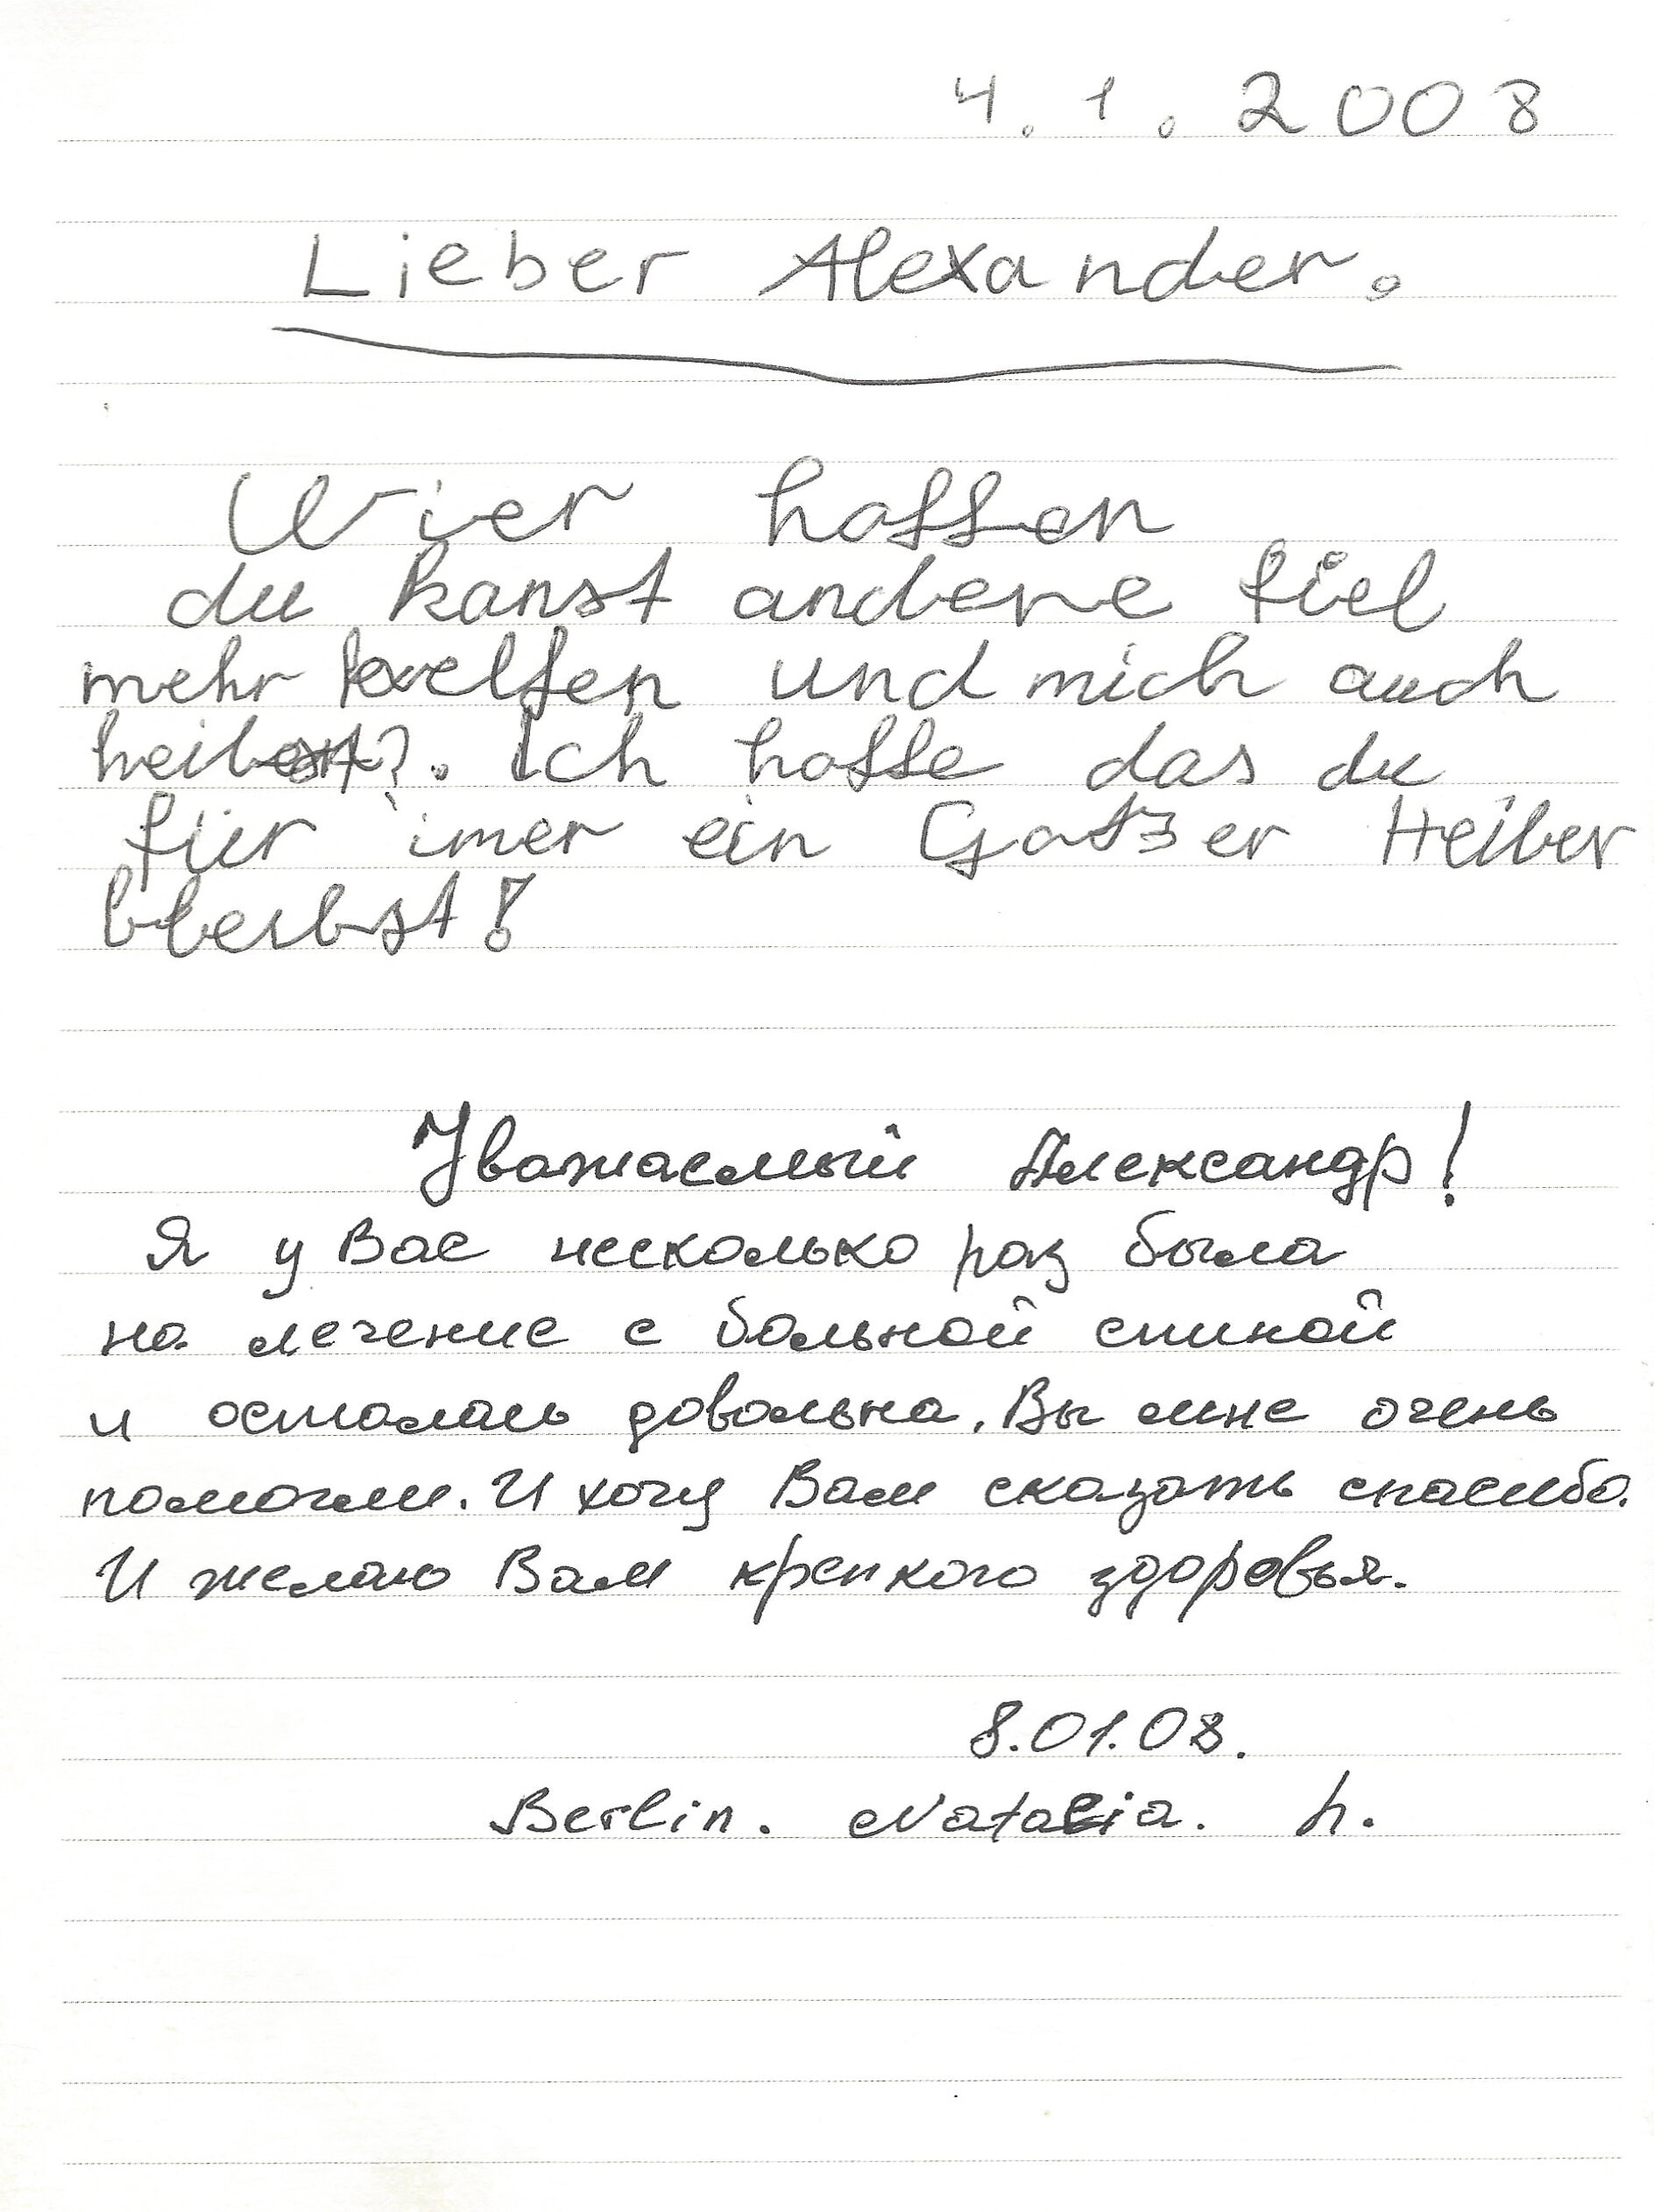 4.1.2008
Lieber Alexander.
Wier hoffen
du kanst andere fiel
mehr helfen und mich auch
heilest?. Ich hoffe das du
für imer ein Gotzer Heiber
bleibst!
Уважаемый Александр!
Я у Вас несколько раз была
на лечение с больной спиной
и осталась довольна. Вы мне очень
помогли. И хочу Вам сказать спасибо.
И желаю Вам крепкого здоровья.
8.01.08.
Berlin. Natalia. h.